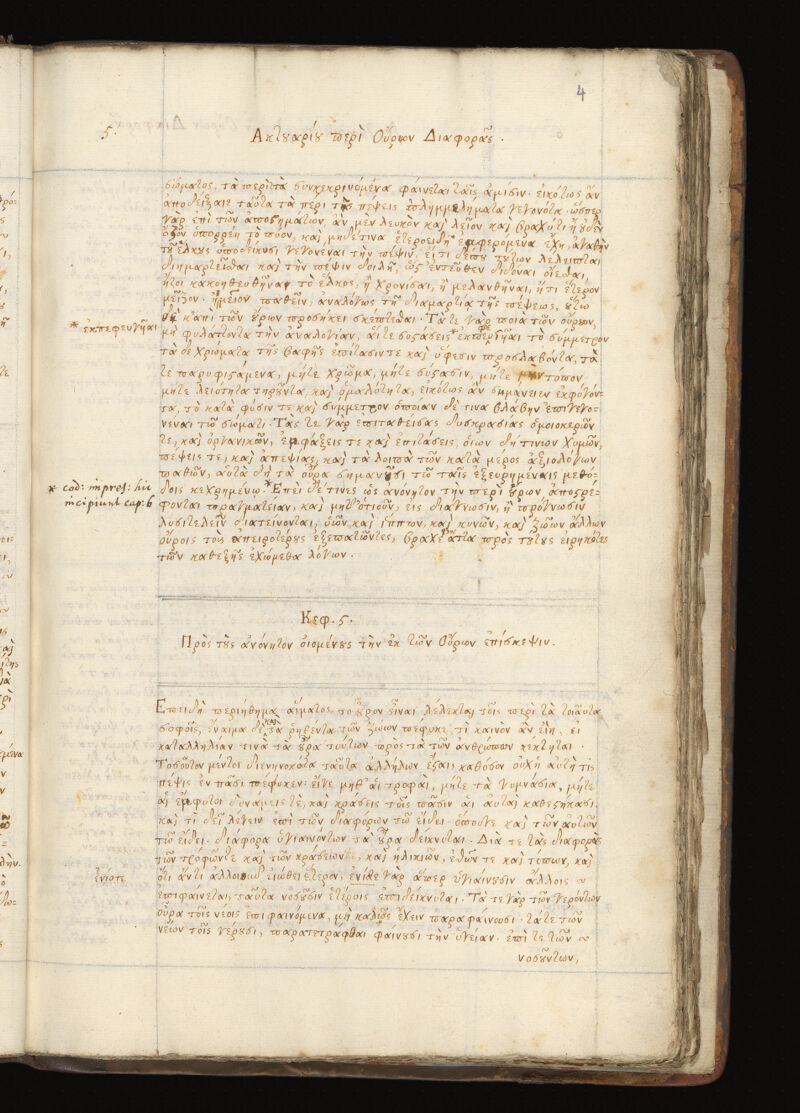 4
5.
Ακτȣαρίȣ περὶ Οὔρων Διαφορᾶς.
σώματος, τὰ περιττὰ συνκεκρινόμενα φαίνεται ταῖς ἀμίσιν· εἰκότως ἂν
ἀποδείξαις ταῦτα τὰ περὶ τὰς πέψεις πλημμελήματα γεγονότα· ὥσπερ
γὰρ ἐπὶ τῶν ἀποστημάτων, ἂν μὲν λευκὸν καὶ λεῖον καὶ βραχύτι ἢ ȣδὲν
ὄζον ἀπορρέῃ τὸ πύον, καὶ μηδέτινα ἑτεροειδῆ ἐμφερόμενα ἔχῃ, ἀγαθὴν
τȣ ἕλκȣς ὑποδείκνυσι γεγονέναι τὴν πέψιν, εἴ τι δέπȣ τȣτων λέλειπται
διημαρτεῖσθαι καὶ τὴν πέψιν δοιλῆ, ὡς ἐντεῦθεν διδόναι οἴεσθαι,
ἤτοι κακοηθευθῆναι τὸ ἕλκος, ἢ χρονίσαι, ἢ μελανθῆναι, ἤ τι ἕτερον
μεῖζον σημεῖον παθεῖν, ἀναλόγως τῇ διαμαρτίᾳ τῆς πέψεως, ȣτω
δὴ κἀπὶ τῶν ȣρων προσήκει σκέπτεσθαι· Τά τε γὰρ ποιὰ τῶν οὔρων,
* ἐκπεφευγῆαι
μὴ φυλάττοντα τὴν ἀναλογίαν, αἵ τε συστάσεις * τὸ σύμμετρον
τὰ δὲ χρώματα τῆς βαφῆς ἐπίτασιν τε καὶ ὕφεσιν προσλαβόντα, τὰ
τε παρυφιστάμενα, μήτε χρῶμα, μήτε σύστασιν, μήτε τόπον
μήτε λειότητα τηρȣντα, καὶ ὁμαλότητα, εἰκότως ἂν σημαίνειεν ἐκφυγόν-
τα, τὸ κατὰ φύσιν τε καὶ σύμμετρον ὁποίαν δέ τινα βλάβην ἐπιγεγο-
νέναι τῷ σώματι· Τάς τε γὰρ ἐπιταθείσας δυσκρασίας ὁμοιομερῶν
τε, καὶ ὀργανικῶν, ἐμφράξεις τε καὶ ἐπιτάσεις, ὁίων δή τινων χυμῶν,
πέψεις τε, καὶ ἀπεψίας, καὶ τὰ λοιπὰ τῶν κατὰ μέρος ἀξιολόγων
παθῶν, αὐτὰ δὴ τὰ οὖρα σημανȣσι τῷ ταῖς ἐξευρημέναις μεθό-
* cod: impress: hic
incipiunt cap: 6
δοις κεχρημένῳ. * Ἐπεὶ δέ τινες ὡς ἀνόνητον τὴν περὶ ȣρων ἀποστρέ-
φονται πραγματείαν, καὶ μηδʼ ὁτιοῦν, εἰς διάγνωσιν, ἢ πρόγνωσιν
λυσιτελεῖν διατείνονται, ὑῶν, καὶ ἵππων, καὶ κυνῶν, καὶ ζώων ἄλλων
οὔροις τοὺς ἀπειροτέρȣς ἐξεπατῶντες, βραχέʼ ἄττα πρὸς τȣτȣς εἰρηκότες
τῶν καθεξῆς ἐχώμεθα λόγων.
Κεφ. ς.
Πρὸς τȣς ἀνόνητον οἰομένȣς τὴν ἐκ τῶν Οὔρων ἐπίσκεψιν.
Επειδὴ περιήθημα αἵματος, το ȣρον εἶναι λέλεκται τοῖς περὶ τὰ τοιαῦτα
σοφοῖς, ἔναιμα δὲ καὶ τὰ ῥηθέντα τῶν ζώων πέφυκε, τί καινὸν ἂν εἴη, εἰ
καταλληλίαν τινα τὰ ȣρα τούτων πρὸς τὰ τῶν ἀνθρώπων κέκτηται·
Τοσοῦτον μέντοι διενηνοχότα ταῦτα ἀλλήλων ἔσται, καθόσον οὐχὶ αὐτή τις
πέψις ἐν πᾶσι πέφυκεν· εἴγε μηθʼ αἱ τροφαὶ, μήτε τὰ γυμνάσια, μήτε
αἱ ἔμφυτοι δυνάμεις τὲ, καὶ κράσεις τοῖς πᾶσιν αἱ αὐταὶ καθεστήκασι.
καὶ τί δεῖ λέγειν ἐπὶ τῶν διαφόρων τῷ εἴδει ὁπότε καὶ τῶν αὐτῶν
τῷ εἴδει, διάφορα ὑγιαινόντων τὰ ȣρα δείκνυται· Διά τε τὰς διαφορὰς
τῶν τροφῶν τε καὶ τῶν κράσεών τε, καὶ ἡλικιῶν, ἐθῶν τε καὶ τόπων, καὶ
ἔνιοτε
ὅτι ἄντι ἀλλοιȣν εἰώθει ἕτερον, ἔνιοτε γὰρ ἅπερ ὑγιαίνȣσιν ἄλλοις
ἐπιφαίνεται, ταῦτα νοσȣσιν ἑτέροις ἐπιδείκνυται. Τά τε γὰρ τῶν γερόντων
οὖρα τοῖς νέοις ἐπιφαινόμενα, μὴ καλῶς ἔχειν παραφαίνουσι· τά τε τῶν
νέων τοῖς γέρȣσι, παρατετράφθαι φαίνȣσι τὴν ὑγείαν. ἐπί τε τῶν
νοσȣντων,